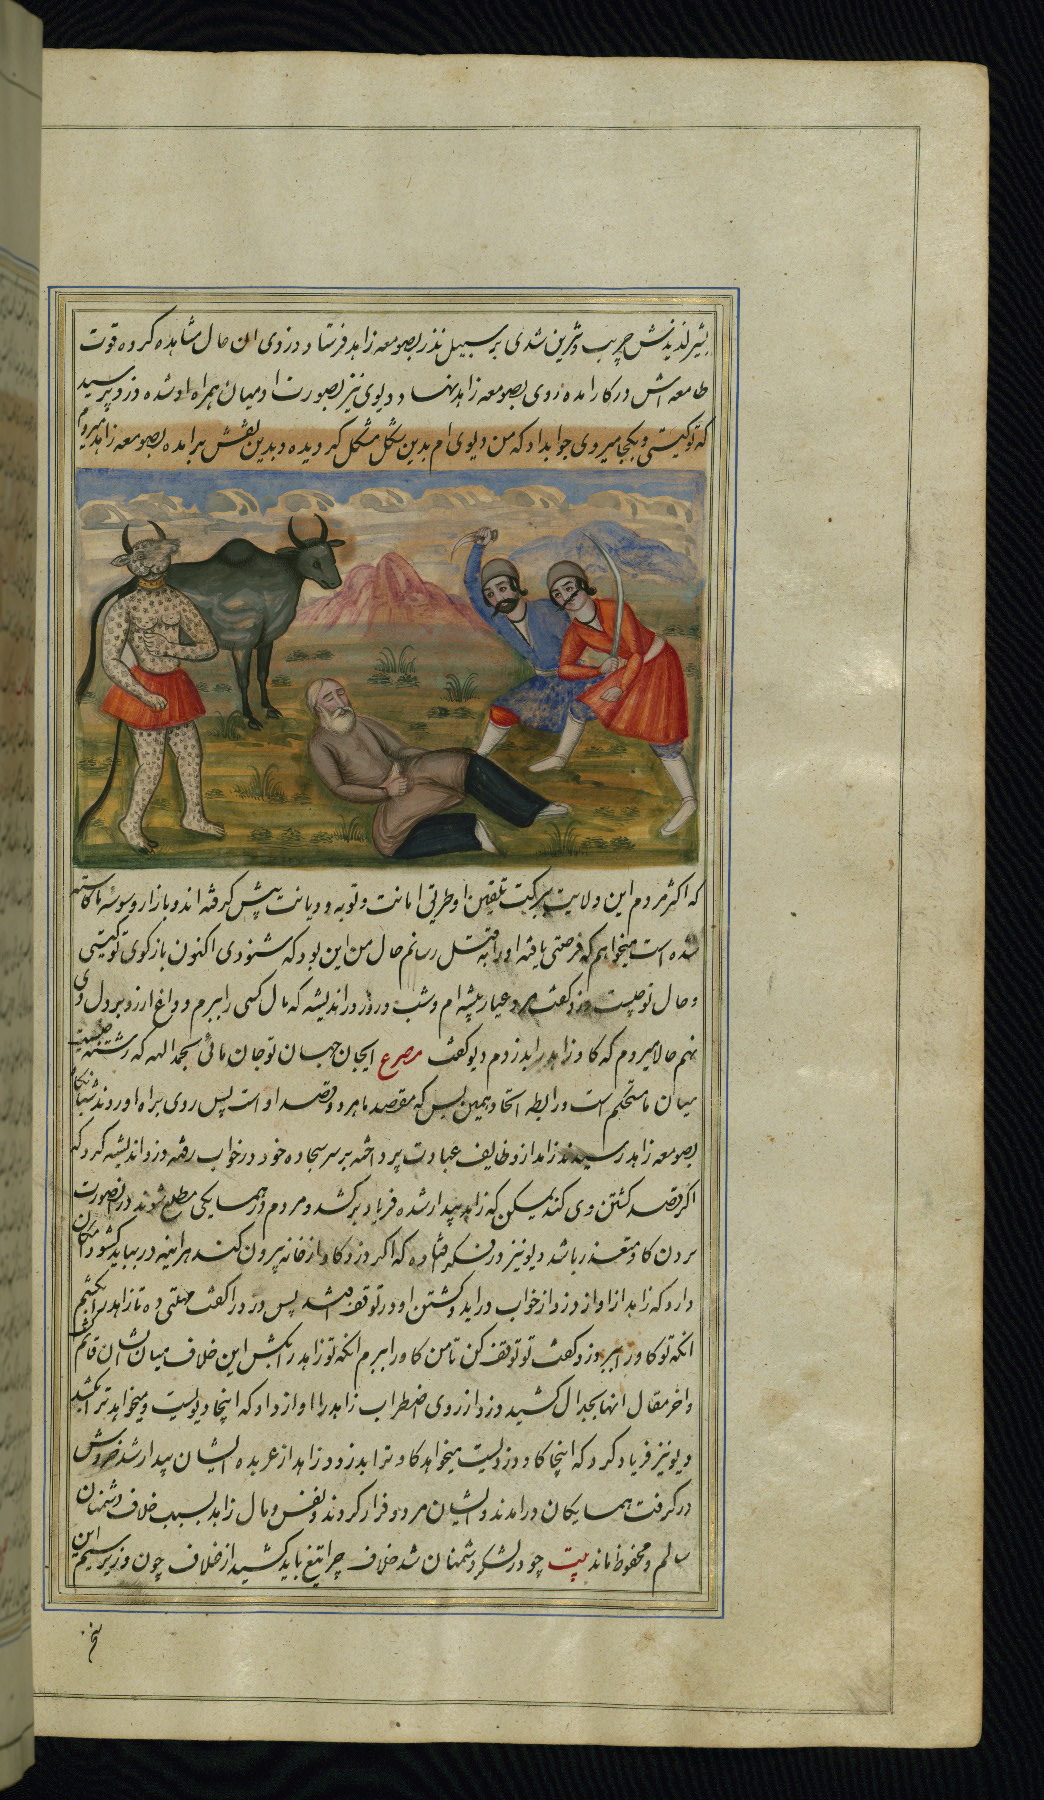 بشیر لذیذش چرب و شیرین شدی بر سبیل نذر بصومعه زاهد فرستاد دزدی ان حال مشاهده کرده قوت
طامعه اش در کار امده روی بصومعه زاهد نهاد و دیوی نیز بصورت ادمیان همراه او شده دزد پرسید
که تو کیستی و بکجا میروی جوابداد که من دیوی ام بدین شکل مشکل کردیده و بدین نقش برامده بصومعه زاهد میروم
که اکثر مردم این ولایت ببرکت تلقین او طریق امانت و توبه و دیانت پیش کرفته اند و بازار وسوسهٔ ما کاسته
شده است میخواهم که فرصتی یافته او را بقتل رسانم حال من این بود که شنودی اکنون بازکوی تو کیستی
و حال تو چیست دزد کفت مرد عیار پیشه ام و شب و روز در اندیشه که مال کسی را ببرم و داغ ارزو بر دل وی
نهم حالا میروم که کاو زاهد را بدزدم دیو کفت مصرع ایجان جهان تو جان مائی بحمد الله که رشته جنسیت
میان ما مستحکم است و رابطه اتحاد همین بس که مقصد ما هر دو قصد او است پس روی براه اوردند شبانکاه
بصومعه زاهد رسیدند زاهد از وظایف عبادت پرداخته بر سر سجاده خود در خواب رفته دزد اندیشه کرد که
اکر قصد کشتن وی کند یمکن که زاهد بیدار شده فریاد برکشد و مردم در همسایکی مطلع شوند در انصورت
بردن کاو متعذر باشد دیو نیز در فکر فتاده که اکر دزد کاو از خانه بیرون کند هراینه در بباید کشود امکان
دارد که زاهد از اواز در از خواب دراید و کشتن او در توقف افتد پس دزد را کفت مهلتی ده تا زاهد را بکشم
انکه تو کاو را ببر دزد کفت تو توقف کن تا من کاو را ببرم انکه تو زاهد را بکش این خلاف میان ایشان قائم کشت
و اخر مقال انها بجدال کشید دزد از روی اضطراب زاهد را اواز داد که اینجا دیویست و میخواهد ترا بکشد
دیو نیز فریاد کرد که اینجا کاو دزدیست میخواهد کاو ترا بدزدد زاهد از عربده ایشان بیدار شد خروش
در کرفت همسایکان درامدند و ایشان هر دو فرار کردند و نفس و مال زاهد بسبب خلاف دشمنان
سالم و محفوظ ماند بیت چو در لشکر دشمنان شد خلاف چرا تیغ باید کشید از غلاف چون وزیر سیم این
سخن